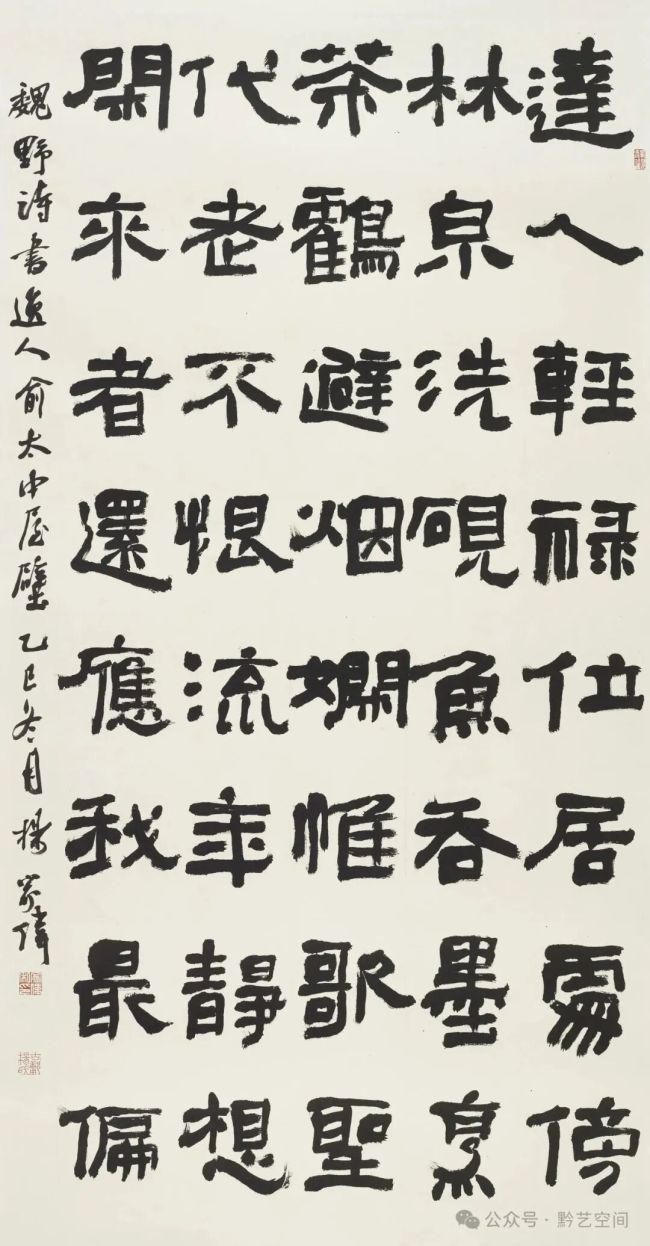 達人輕祿位居處傍
林泉洗硯魚吞墨烹
茶鶴避烟嫻惟歌聖
代老不恨流年靜想
閑來者還應我最偏
魏野詩書逸人俞太中屋壁乙巳冬月楊偉
公众号·黔艺空间